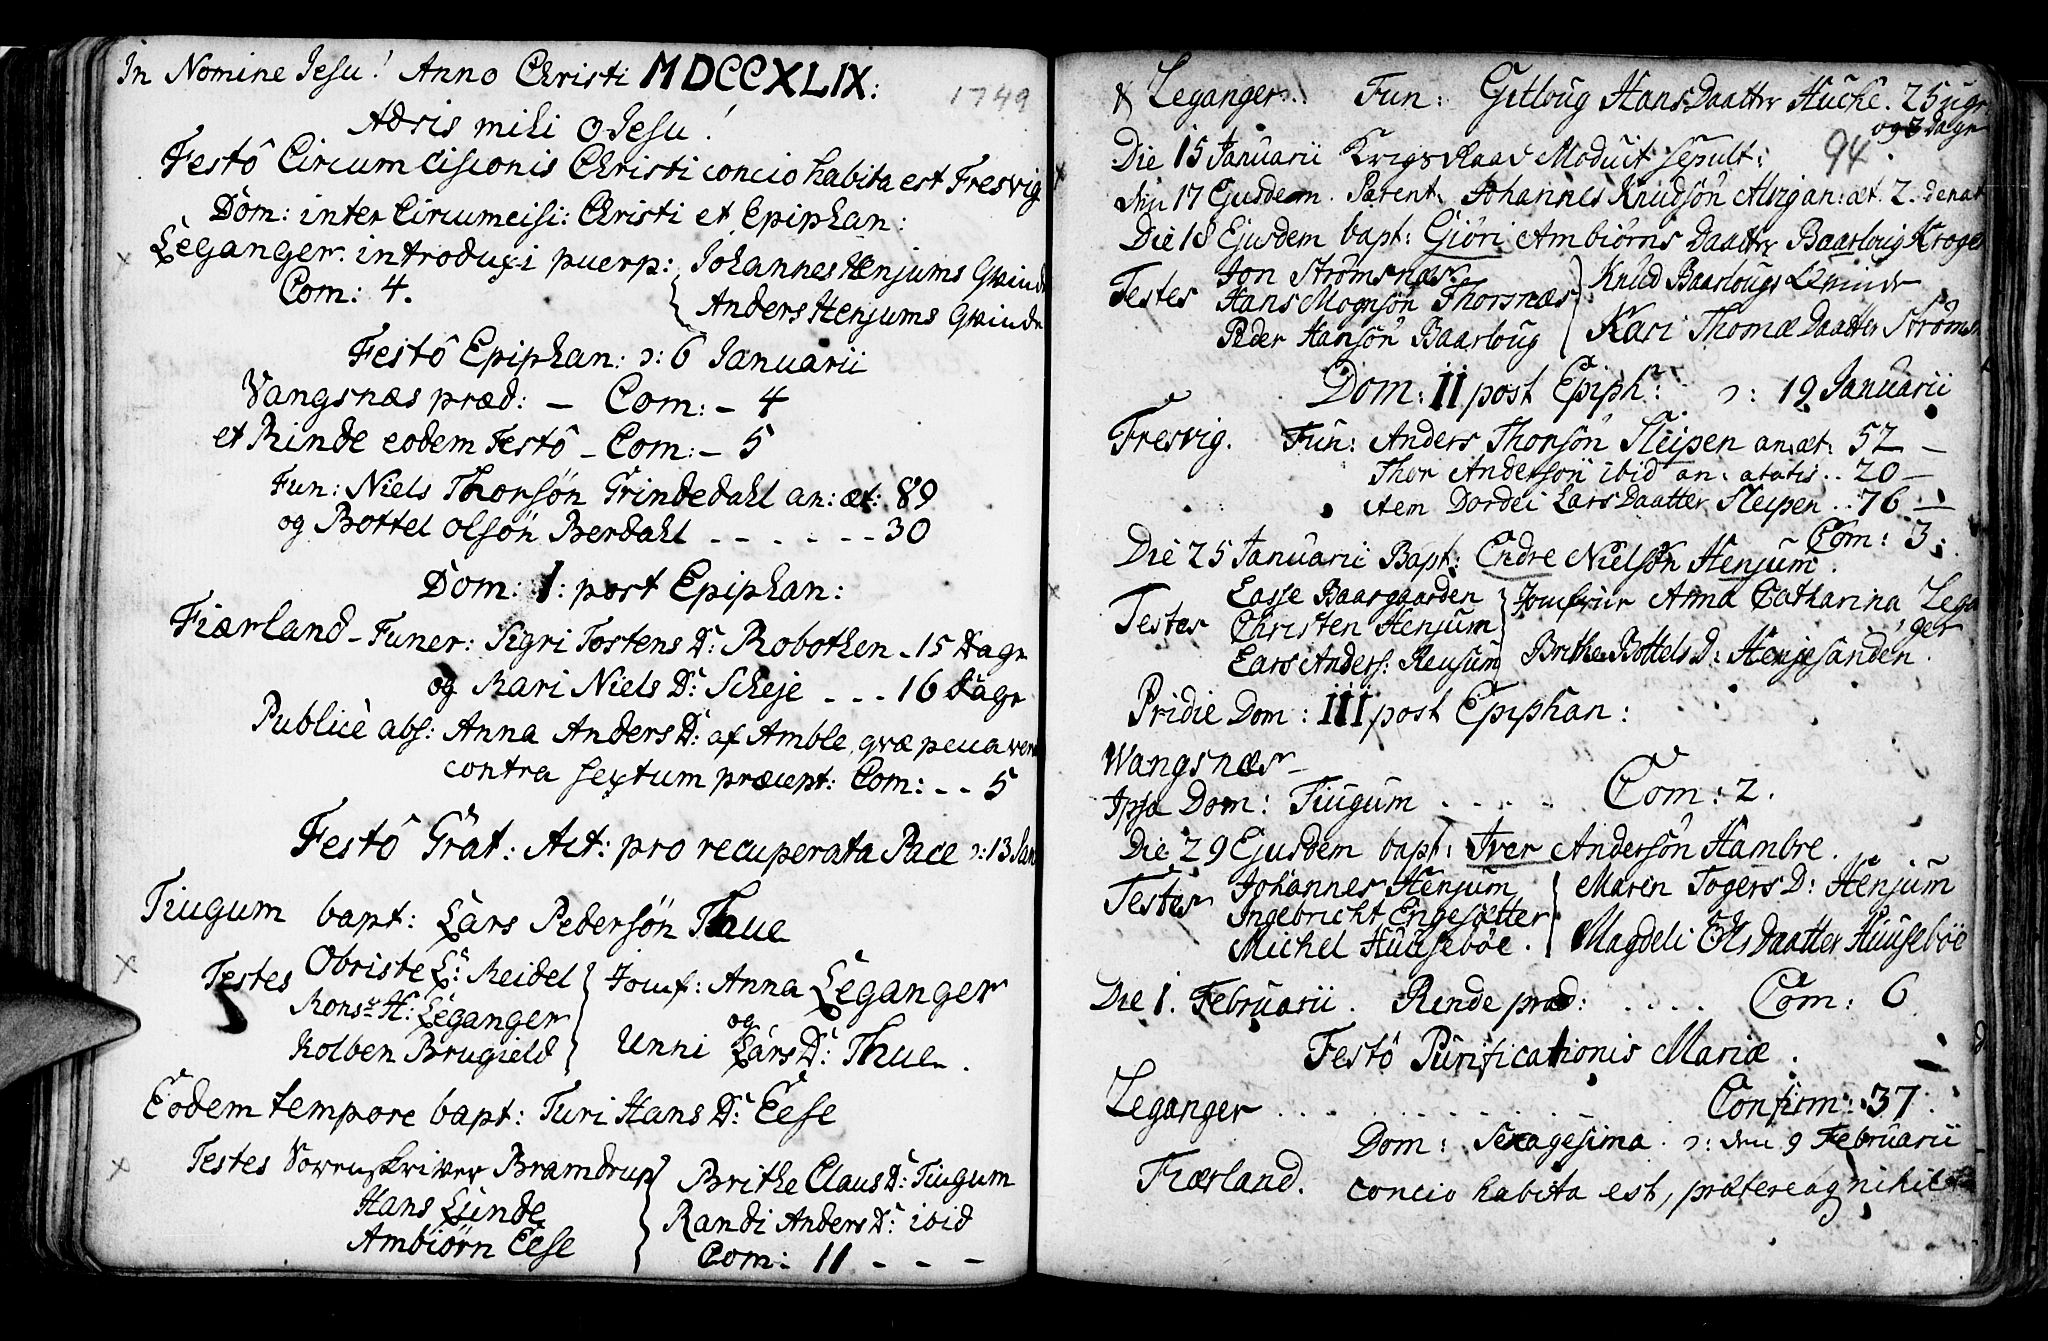 In Nomine Jesu! Anno Christi MDCCXLIX:
1749
Adsis mihi O Jesu!
Festô Circumcisionis Christi concio habita est Fresvig
Dom: inter Circumcisi: Christi et Epiphan:
Leganger. introduxi puerp: Johannes Henjums Qvinde
Com: 4. Anders Henjums Qvinde
Festô Epiphan: ɔ: 6 Januarii
Vangsnæs præd: – Com: – 4
et Rinde eodem Festô – Com: – 5
Fun: Niels Thorsön Grindedahl an: æt: 89
og Bottel Olsön Berdahl - - - - - - 30
Dom: I: post Epiphan:
Fiærland – Funer: Sigri Tostens D: Robothen - 15 Dage
og Kari Niels D: Scheje - - - 16 Dage
Publicè abs: Anna Anders D: af Amble, qvæ
contra sextum præcept: Com: - - 5
Festô Grat: Act: pro recuperata Pace ɔ: 13 Jan
Tiugum bapt: Lars Pedersön Thue
Testes Obriste L: Reidel Jomf: Anna Leganger
Mons:r H: Leganger og
Kolben Brugield Unni Lars D: Thue.
Eodem tempore bapt: Turi Hans D: Eese
Testes Sorenskriver Bramdrup Brithe Claus D: Tiugum
Hans Lunde Randi Anders D: ibid
Ambiörn Eese Com: 11 - - -
Leganger. Fun: Gitloug Hans Daatter Huche. 25 uger
og 3 Dage
94
Die 15 Januarii Krigsraad Moduit sepult:
den 17 Ejusdem. Parent. Johannes Knudsön an: æt. 2. denat
Die 18 Ejusdem bapt: Giöri Ambiörns Daatter Baarloug Kroge
Testes Jon Strömsnæs Knud Baarlougs Qvinde
Hans Mognsön Thorsnæs
Peder Hansön Baarloug Kari Thomæ Daatter Strömsn
Dom: II post Epiph: ɔ: 19 Januarii
Fresvig. Fun: Anders Thorsön Sleipen an: æt: 52 –
Thor Andersön ibid an: ætatis .. 20 –
item Dordei Lars Daatter Sleipen .. 76 –
Com: 3.
Die 25 Januarii Bapt: Endre Nielsön Henjum.
Testes Lasse Baargaarden Jomfrue Anna Catharina Lega
Christen Henjum nger
Lars Anders: Reusum Brithe Bottels D: Henjesanden.
Pridie Dom: III post Epiphan:
Wangsnæs –
Ipsa Dom: Tiugum . . . . . Com: 2.
Die 29 Ejusdem bapt: Iver Andersön Hambre.
Testes Johannes Henjum Marin Togers D: Henjum
Ingebricht Engesætter
Michel Huuseböe. Magdeli Ols Daatter Huuseböe
Die 1. Februarii. Rinde præd: . . . . Com: 6
Festô Purificationis Mariæ.
Leganger . . . . . . . . . . Confirm: 37.
Dom: Sexagesima. ɔ: den 9 Februarii
Fiærland. concio habita est, præterea nihil